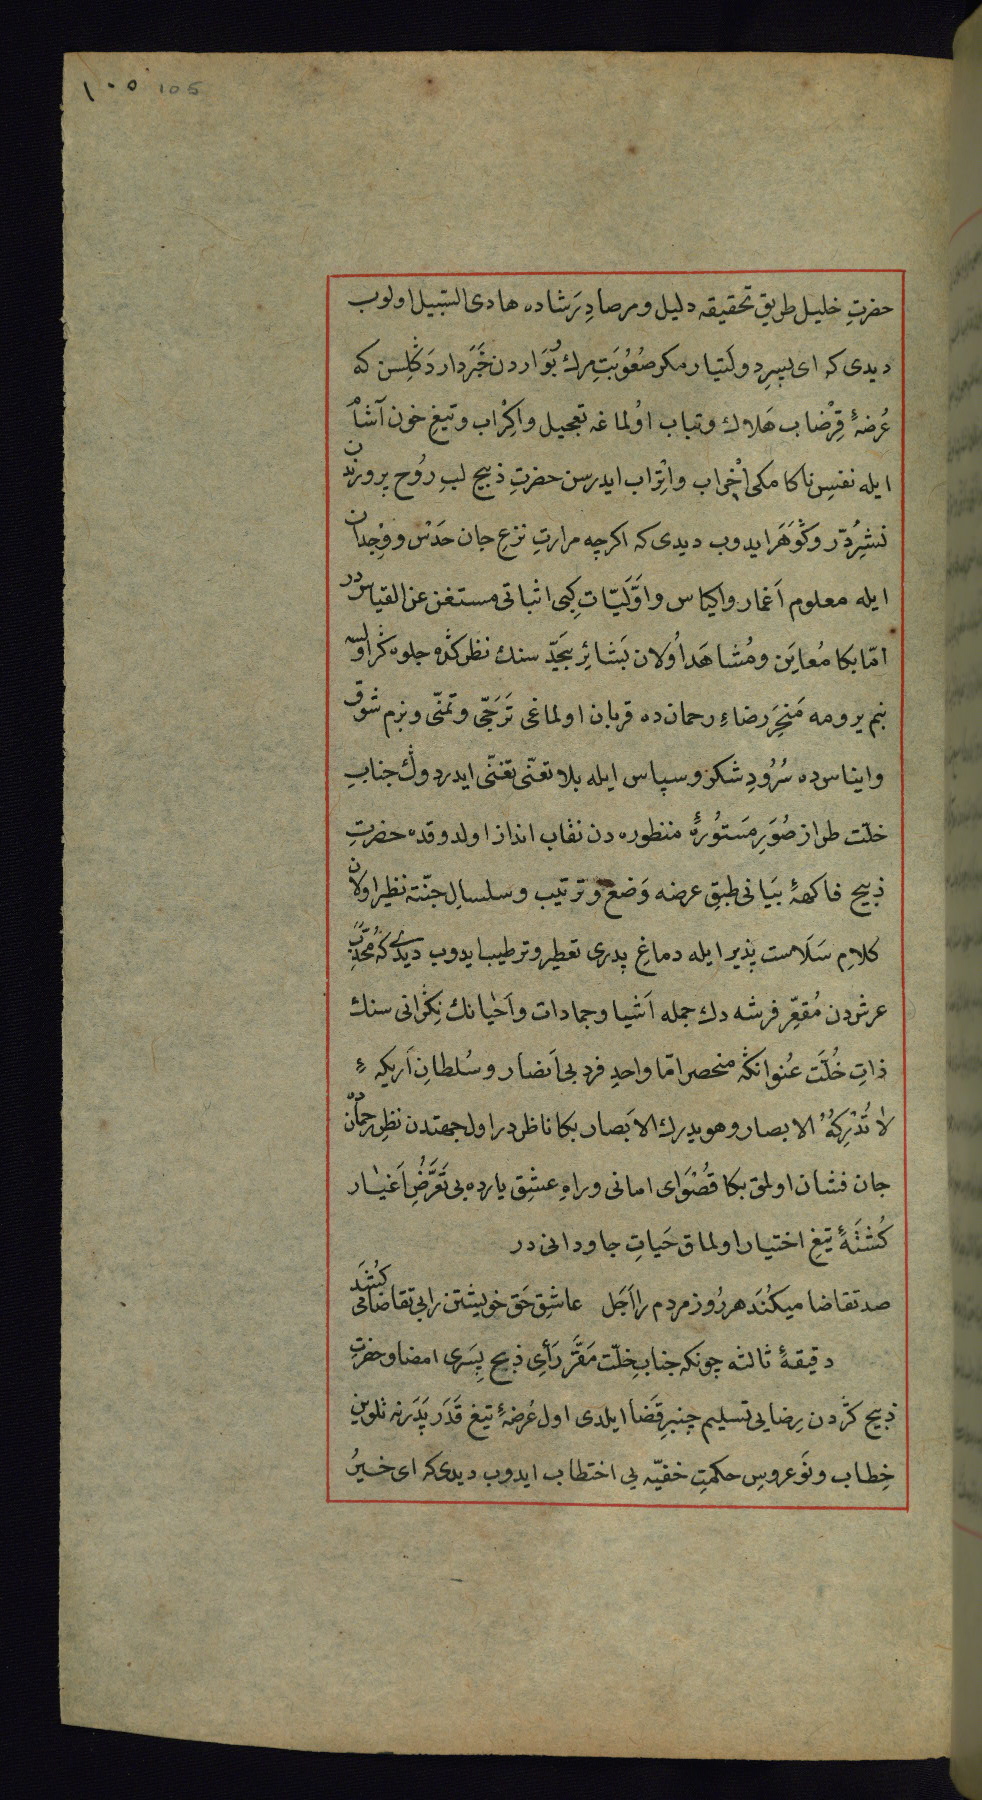 ١٠٥ 105
حضرتِ خليل طريقِ تحقيقه دليل و مرصادِ رَشاده هادى السّبيل اولوب
ديدى كه اى پسرِ دولتيار مكر صُعُوبَتِ مرك بُوَاردن خَبَردار دَكِلسن كه
عُرضۀ قِرْضاب هَلاك و تباب اوُلماغه تعجيل و اِكِرْاب و تيغِ خون آشام
ايله نفسِ ناكامكى اِخْراب و اِتِراب ايدرسن حضرتِ ذبيح لبِ رُوح پروَرندن
نشرِ دُرّ و كَوهَر ايدوب ديدى كه اكرچه مرارتِ نزعِ جان حَدْس و وِجدان
ايله معلوم اَغمار و اكياس و اَوَّليّات كبى اثباتى مستغنى عن القياس در
امّا بكا مُعايَن و مُشاهَد اُولان بَشائِر سنك نظركده جلوه كر اولسه
بنم يرومه مَنحِرَ رضاءِ رحمان ده قربان اولماغى تَرَجّى و تمنّى و بزم شوق
و ايناس ده سُرُودِ شكر و سپاس ايله بلا تعنّى تغنّى ايدردوڭ جنابِ
خلّت طراز صُوَرِ مَستُورۀ منظوره دن نقاب انداز اولدوقده حضرتِ
ذبيح فاكهۀ بَيانى طبقِ عرضه وَضع و ترتيب و سلسالِ جنّته نظير اولان
كلامِ سَلَاست پذير ايله دماغِ پدرى تعطير و ترطيب ايدوب ديدى كه مُحَدَّبِ
عرشدن مُقعّرِ فرشه دك جمله اَشيا و جمادات و اَحْيانك نِكْرانى سنك
ذاتِ خُلّت عُنوانكه منحصر امّا واحدِ فردِ بى اَنصار و سُلطانِ اَريكهءِ
لاٰ تُدْرِكُهُ الابصار و هو يدرك الابَصار بكا ناظر در اول جهتدن نظرِ رحمان ده
جان فشان اولمق بكا قُصْوَاى امانى و راهِ عشقِ يارده بى تَعَرُّضِ اَغيٰار
كُشتَهٔ تيغِ اختيار اولماق حَياتِ جاودانى در
صد تقاضا ميكُنَد هر رُوز مردم را اَجَل عاشِقِ حَق خويشتن را بى تقاضا مى كُشَد
دقيقۀ ثالثه چونكه جنابِ خلّت مَقَرّ رَأىِ ذبحِ پِسَرى امضا و حضرتِ
ذبيح كَردن رِضايى تسليم چنبرِ قَضا ايلدى اول عُرضۀ تيغ قَدَر پَدَرنه تلوينِ
خِطاب و نَو عروسِ حكمتِ خفيّه يى اختطاب ايدوب ديدى كه اى خيرُ